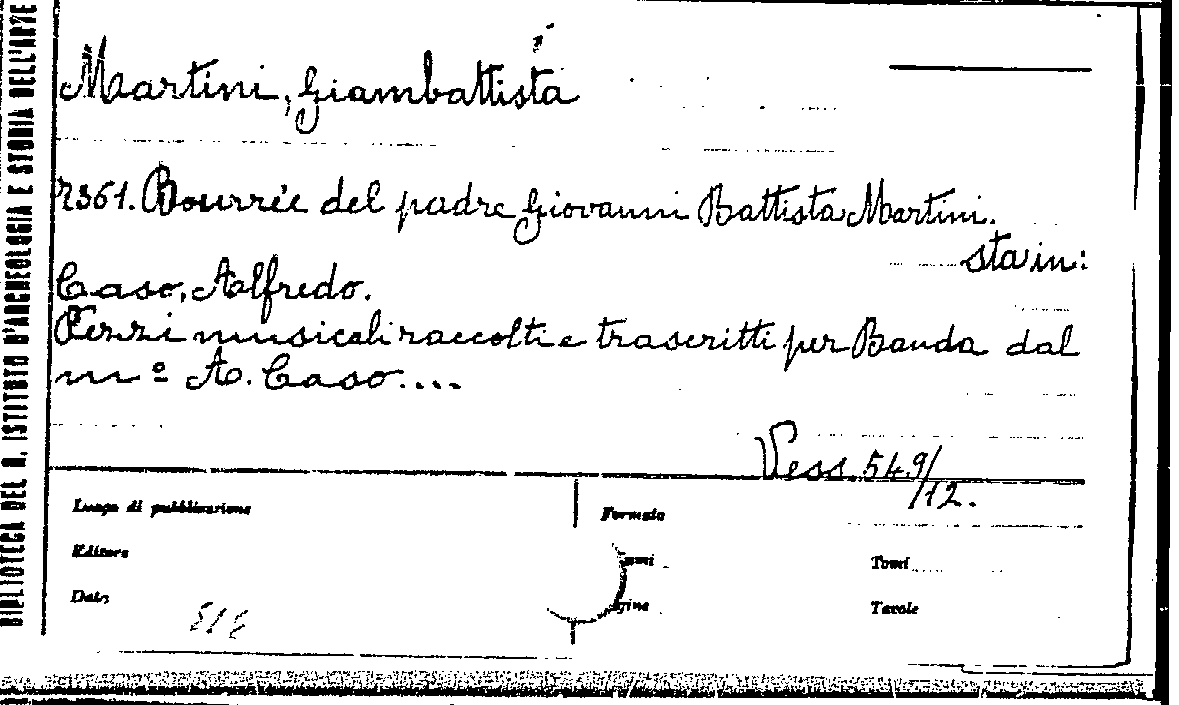 BIBLIOTECA DEL R. ISTITUTO D'ARCHEOLOGIA E STORIA DELL'ARTE
Martini, Giambattista
2361. Bourrée del padre Giovanni Battista Martini.
sta in:
Caso, Alfredo.
Pezzi musicali raccolti e trascritti per Banda dal
mº A. Caso....
Vess. 549/
/12.
Luogo di pubblicazione
Formato
Editore
Tomi
Data
Tavole